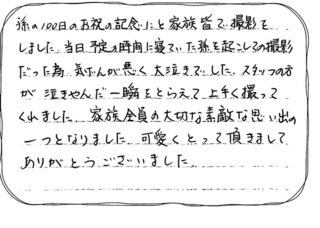 孫の100日のお祝の記念にと家族皆で撮影を
しました。当日、予定の時間に寝ていた孫を起こしての撮影
だった為、気分が悪く大泣きでした。スタッフの方
が泣きやんだ一瞬をとらえて上手く撮って
くれました。家族全員の大切な素敵な思い出の
一つとなりました。可愛くとって頂きまして
ありがとうございました。